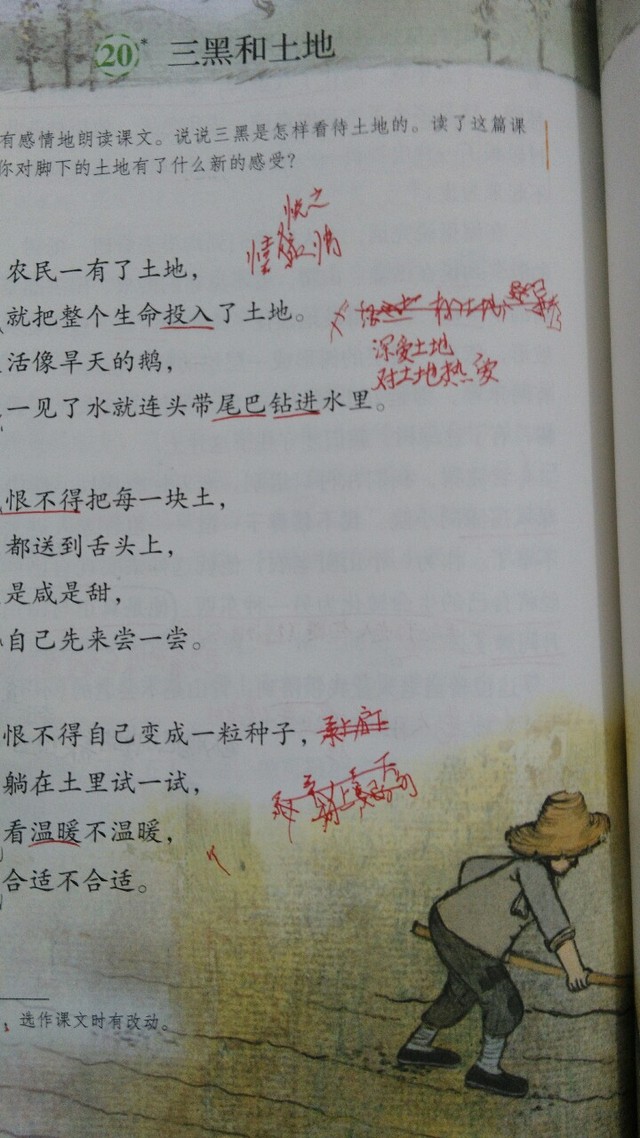 20* 三黑和土地
有感情地朗读课文。说说三黑是怎样看待土地的。读了这篇课
你对脚下的土地有了什么新的感受？
农民一有了土地，
就把整个生命投入了土地。
活像旱天的鹅，
一见了水就连头带尾巴钻进水里。
深爱土地
对土地热爱
恨不得把每一块土，
都送到舌头上，
是咸是甜，
自己先来尝一尝。
恨不得自己变成一粒种子，
躺在土里试一试，
看温暖不温暖，
合适不合适。
选作课文时有改动。